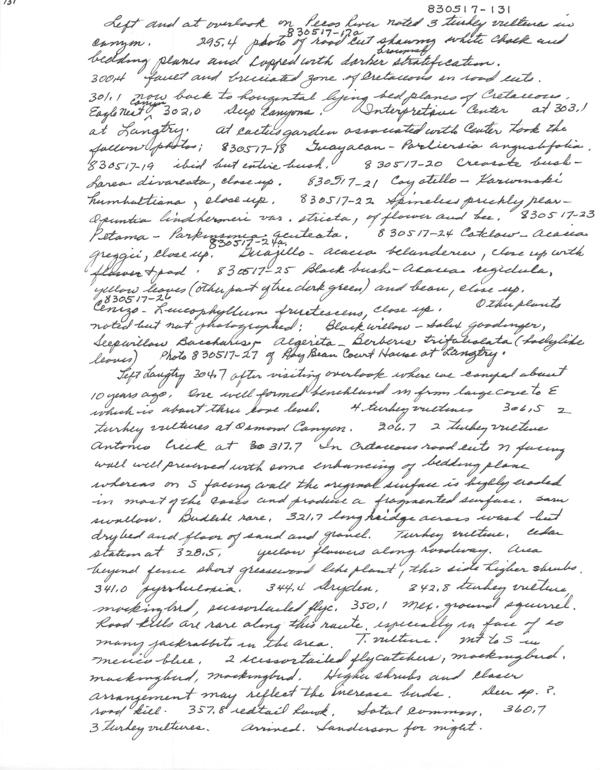 131
830517-131
Left and at overlook on Pecos River noted 3 turkey vultures in
830517-17a
canyon. 295.4 photo of road cut showing white chalk and
brownish
bedding planes and capped with darker stratification.
300.4 fault and brecciated zone of Cretaceous in road cuts.
301.1 now back to horizontal lying bed planes of Cretaceous.
Eagle Nest Canyon 302.0 Deep Canyons. Interpretive Center at 303.1
at Langtry. At cactus garden associated with Center took the
follown photos: 830517-18 Guayacan - Porliersia angustifolia.
830517-19 ibid but entire bush. 830517-20 Creosote bush -
Larea divaricata, close up. 830517-21 Coyotello - Karwinski
humboltiana, close up. 830517-22 Spineless prickly pear -
Opuntia lindhermeri var. stricta, of flower and bee. 830517-23
Petama - Parkinsonia aculeata. 830517-24 Catclaw - Acacia
830517-24a
greggii, close up. Guajillo - acacia belanderia, close up with
flower & pod. 830517-25 Black bush - Acacia rigidula,
yellow leaves (other part of tree dark green) and bean, close up.
830517-26
Cenizo - Leucophyllum frutescens, close up. Other plants
noted but not photographed: Black willow - Salix goodingii,
Seepwillow Baccharis, Algerita - Berberis trifoliolata (hollylike
leaves) Photo 830517-27 of Roy Bean Court House at Langtry.
Left Langtry 304.7 after visiting overlook where we camped about
10 years ago. One well formed benchland in from large cove to E
which is about three cove level. 4 turkey vultures 306.5 2
turkey vultures at Osmond Canyon. 206.7 2 turkey vultures
Antonio Creek at 317.7 In Cretaceous road cuts N facing
wall well preserved with some enhancing of bedding plane
whereas on S facing wall the original surface is highly eroded
in most of the cases and produce a fragmented surface. barn
swallow. Birdlife rare. 321.7 long bridge across wash but
dry bed and floor of sand and gravel. Turkey vulture. Cedar
station at 328.5. yellow flowers along roadway. Area
beyond fence short greasewood like plant, this side higher shrubs.
341.0 pyrrhuloxia. 344.4 Dryden. 342.8 turkey vulture,
mockingbird, scissortailed flyc. 350.1 Mex. ground squirrel.
Road kills are rare along this route, especially in face of so
many jackrabbits in the area. T. vulture. Mt to S in
Mexico blue. 2 scissortailed flycatchers, mockingbird.
mockingbird, mockingbird. Higher shrubs and closer
arrangement may reflect the increase birds. Deer sp. ?
road kill. 357.8 redtail hawk. Sotol common. 360.7
3 turkey vultures. Arrived Sanderson for night.